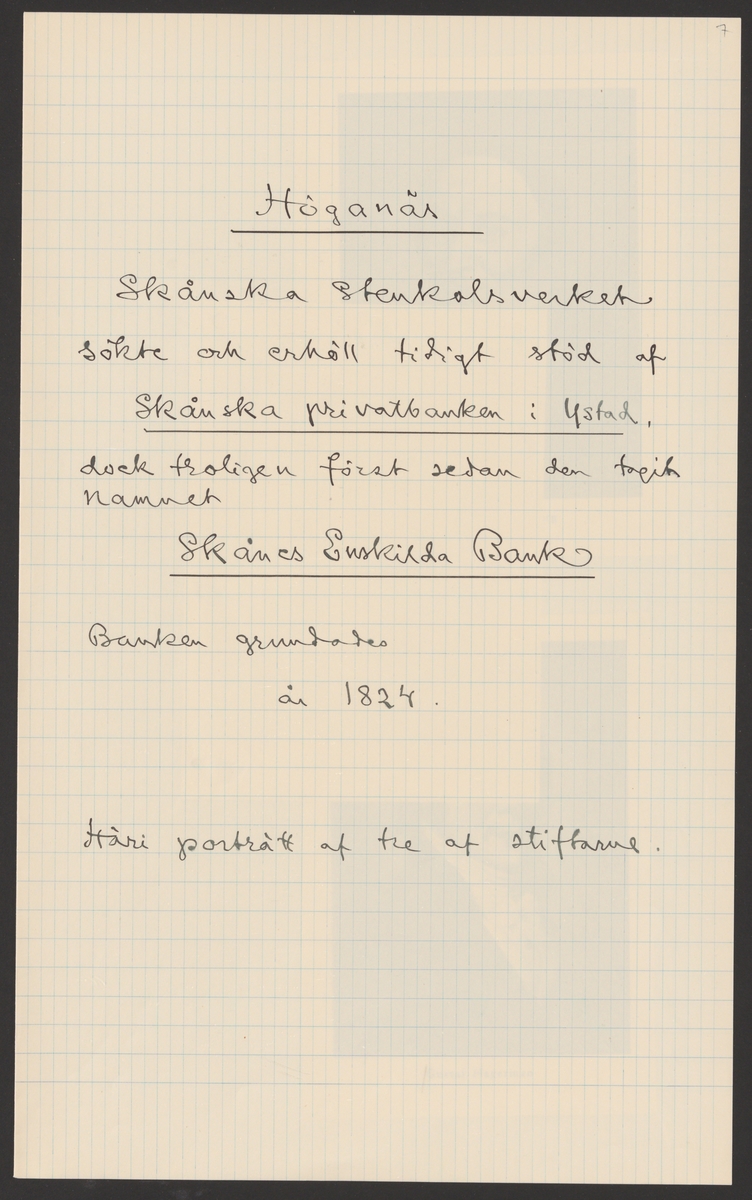 7
Höganäs
Skånska Stenkolsverket
sökte och erhöll tidigt stöd af
Skånska privatbanken i Ystad,
dock troligen först sedan den tagit
namnet
Skånes Enskilda Bank
Banken grundades
år 1824.
Häri porträtt af tre af stiftarne.